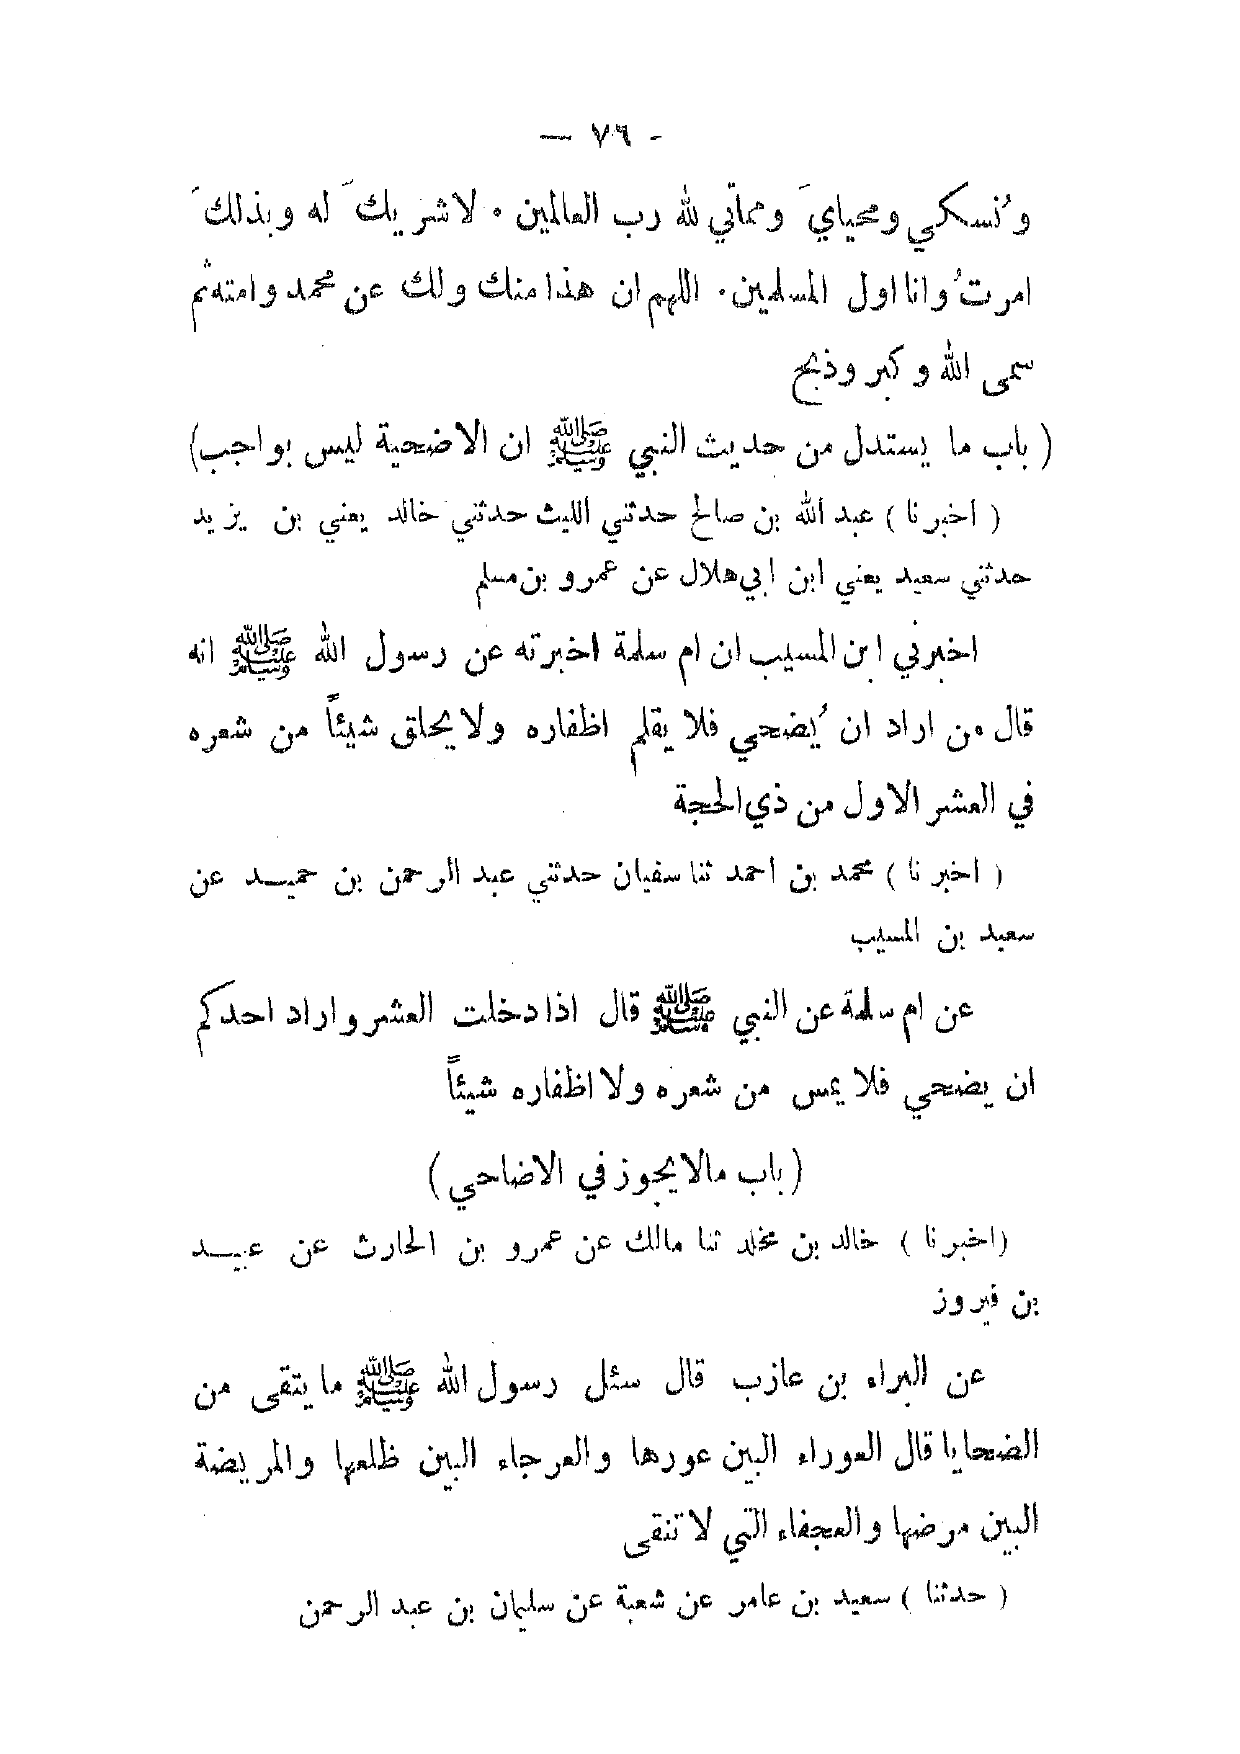 - ٧٦ —
وُنسكي ومحيايَ ومماتي لله رب العالمين . لاشريكَ له وبذلكَ
امرتُ وانا اول المسلمين . اللهم ان هذا منك ولك عن محمد وامته ثم
سمى الله وكبر وذبح
( باب ما يستدل من حديث النبي ﷺ ان الاضحية ليس بواجب)
( اخبرنا ) عبد الله بن صالح حدثني الليث حدثني خالد يعني بن يزيد
حدثني سعيد يعني ابن ابي هلال عن عمرو بن مسلم
اخبرني ابن المسيب ان ام سلمة اخبرته عن رسول الله ﷺ انه
قال من اراد ان ُيضحي فلا يقلم اظفاره ولا يحلق شيئاً من شعره
في العشر الاول من ذي الحجة
( اخبرنا ) محمد بن احمد ثنا سفيان حدثني عبد الرحمن بن حميد عن
سعيد بن المسيب
عن ام سلمة عن النبي ﷺ قال اذا دخلت العشر واراد احدكم
ان يضحي فلا يمس من شعره ولا اظفاره شيئاً
(باب مالا يجوز في الاضاحي)
(اخبرنا ) خالد بن مخلد ثنا مالك عن عمرو بن الحارث عن عبيد
بن فيروز
عن البراء بن عازب قال سئل رسول الله ﷺ ما يتقى من
الضحايا قال العوراء البين عورها والعرجاء البين ظلعها والمريضة
البين مرضها والعجفاء التي لا تنقى
( حدثنا ) سعيد بن عامر عن شعبة عن سليمان بن عبد الرحمن